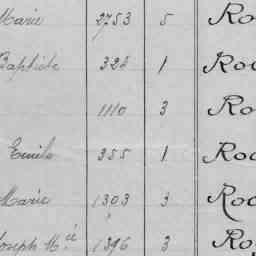 Marie 2753 5 Ro
Baptiste 328 1 Ro
1110 3 Ro
Emile 355 1 Roc
Marie 1303 3 Roc
Joseph M.ie 1396 3 Ro